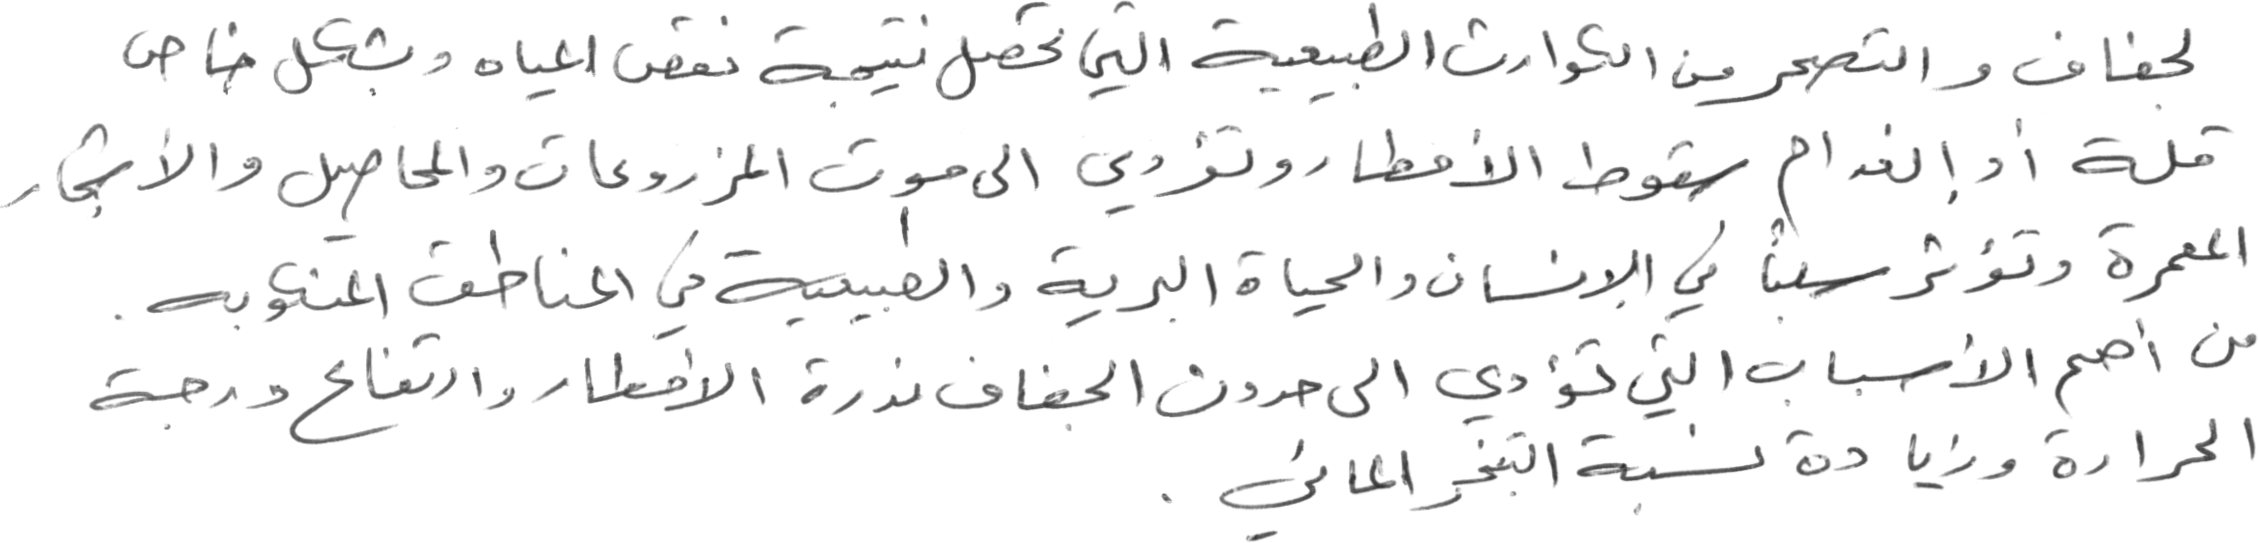 لجفاف والتصحر من الكوارث الطبيعية التي تحصل نتيجة نقص المياه وبشكل خاص
قلة أو إنعدام سقوط الأمطار وتؤدي الى موت المزروعات والمحاصيل والأشجار
المعمرة وتؤثر سلباً في الإنسان والحياة البرية والطبيعية في المناطق المنكوبه .
من أهم الأسباب التي تؤدي الى حدوث الجفاف ندرة الامطار وارتفاع درجة
الحرارة وزيادة نسبة التبخر المائي .